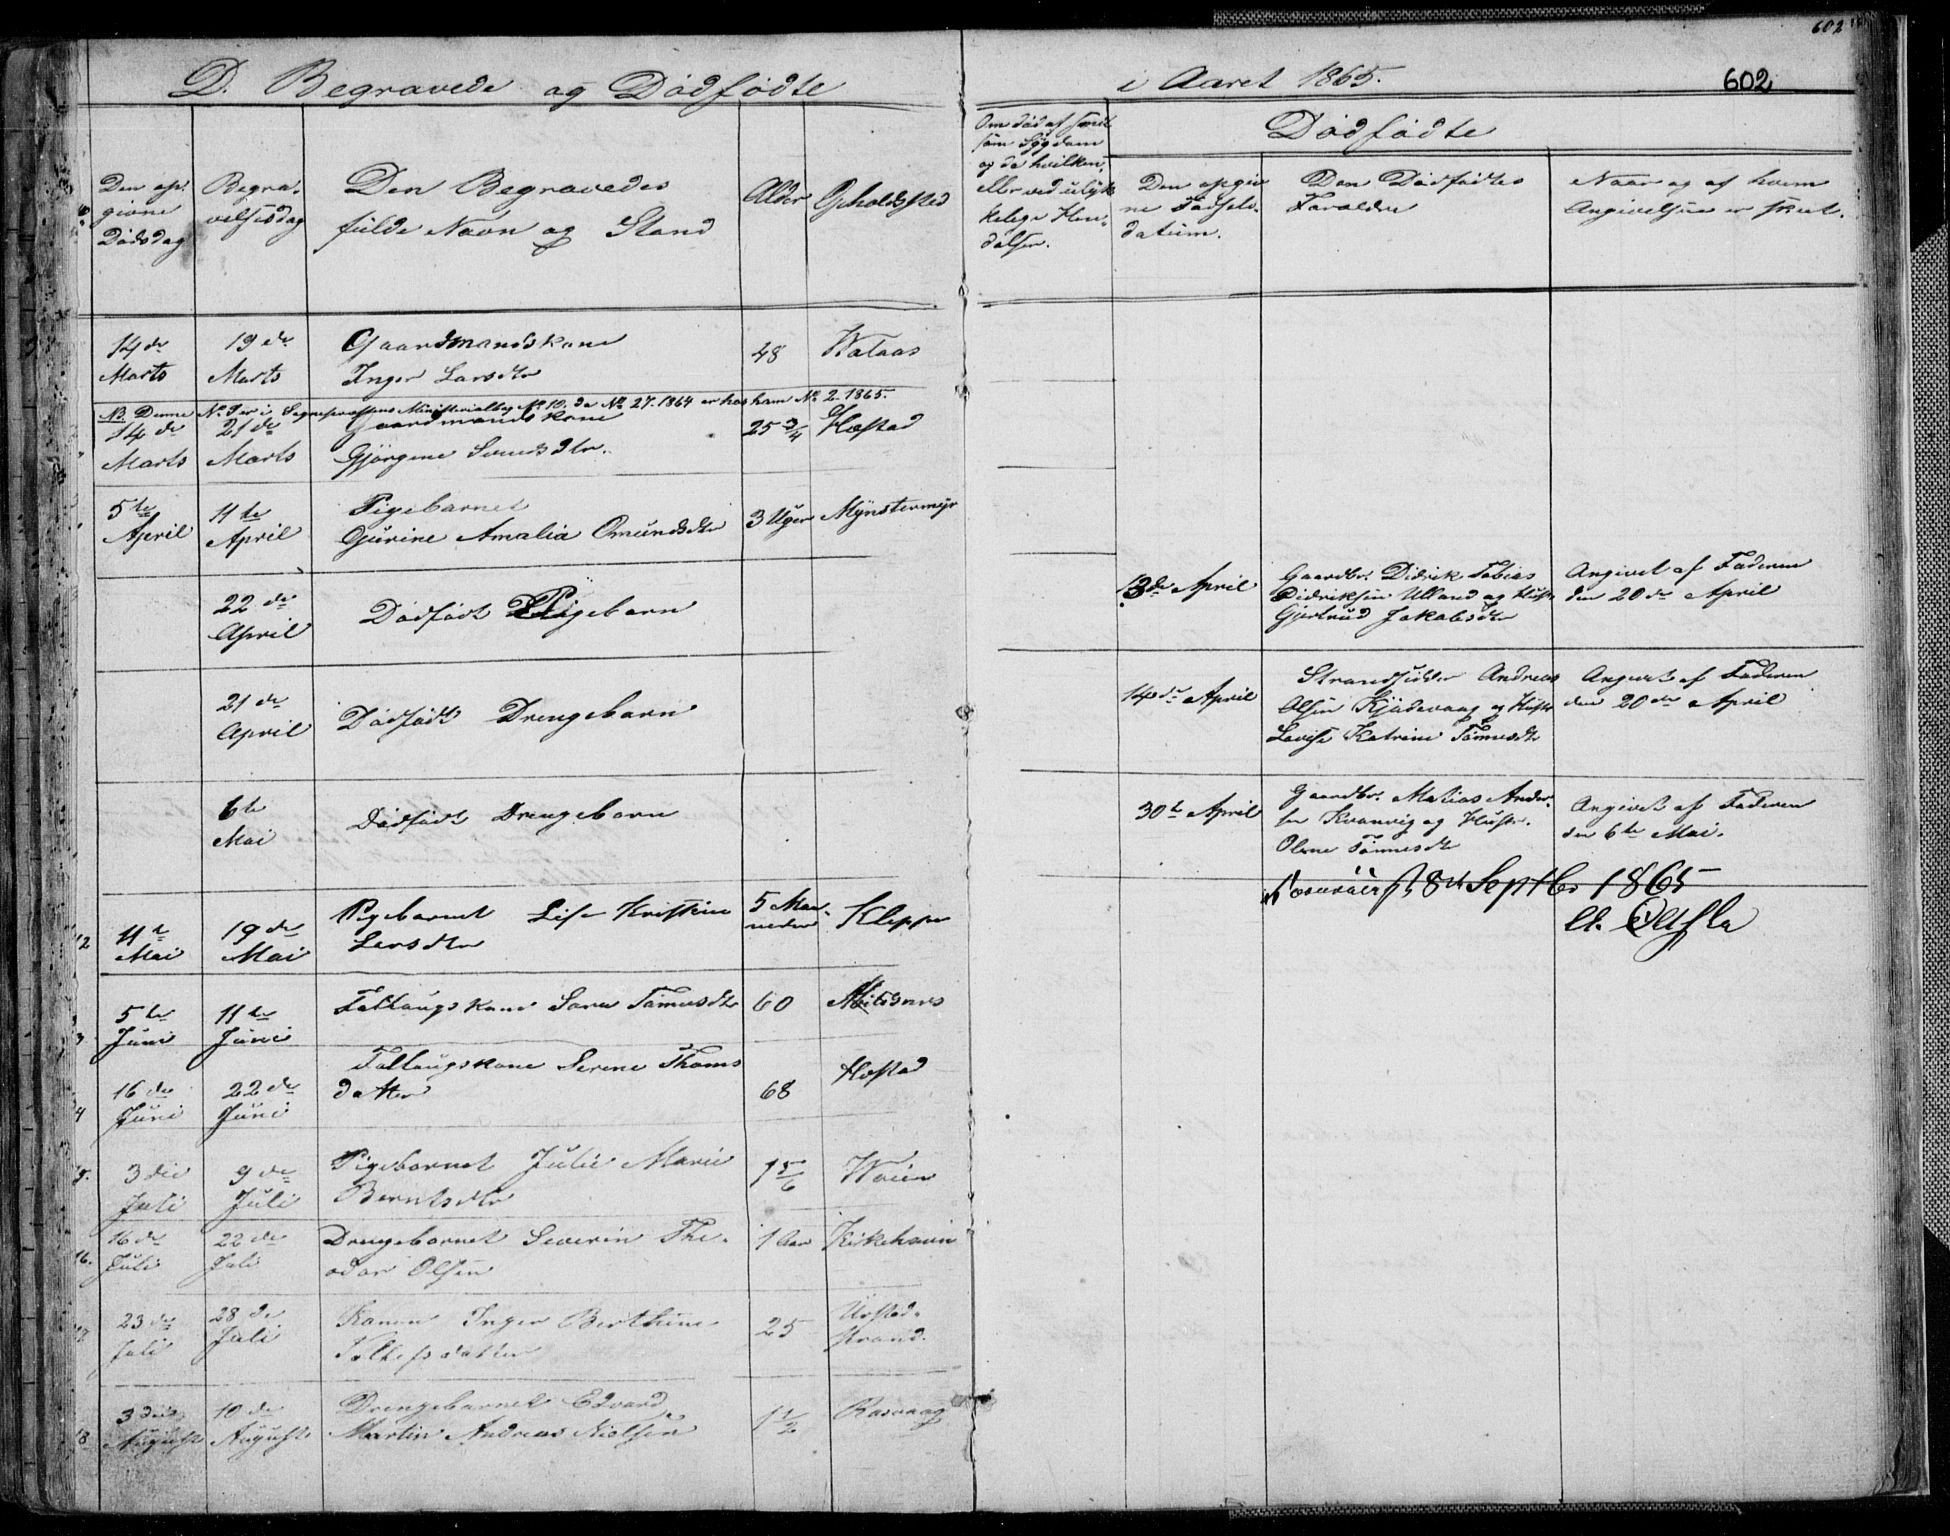 602
D. Begravede og Dødfødte
i Aaret 1865.
602
Den op-
givne
Dødsdag
Begra-
velsesdag
Den Begravedes
fulde Navn og Stand
Alder
Opholdssted
Om død af smit
som Sygdom
og da hvilken,
eller ved ulyk
kelige Hæn-
delser.
Dødfødte
Den opgiv
ne Fødsels-
datum.
Den Dødfødtes
Forældre
Naar og af hvem
Angivelsen er skeet.
14de
Marts
19de
Marts
Gaardmandskone
Inger Larsdtr
48
Wataas
NB Denne No 9 er i Sognepræstens Ministerialbog No 10. da No 27. 1864 er hos ham No 2. 1865.
14de
Marts
21de
Marts
Gaardmandskone
Gjørgine Svendsdtr.
25 3/4
Hæstad
5te
April
11te
April
Pigebarnet
Gurine Amalia Omundsdtr
3 Uger
Mynstermyr
22de
April
Dødfødt Pigebarn
13de April
Gaardbr. Didrik Tobias
Didriksen Ulland og Hustr
Gjertrud Jakobsdtr
Angivet af Faderen
den 20de April
21de
April
Dødfødt Drengebarn
14de April
Strandsidder Andreas
Olsen Kjødevaag og Hustr
Lovise Katrine Tønnesdtr
Angivet af Faderen
den 20de April
6te
Mai
Dødfødt Drengebarn
30te April
Gaardbr. Matias Ander-
sen Kvanvig og Hustr.
Olene Tønnesdtr
Angivet af Faderen
den 6te Mai.
18de Septbr 1865
12
11te
Mai
19de
Mai
Pigebarnet Lise Kristine
Larsdtr
5 Maa-
neder
Kleppe
3
5te
Juni
11te
Juni
Fattigskone Sara Tønnesdtr
60
4
16de
Juni
22de
Juni
Serine Thoms
datter
68
Hæstad
15.
3die
Juli
9de
Juli
Pigebarnet Julie Marie
Berntsdtr
1 5/6
Woien
16.
16de
Juli
22de
Juli
Drengebarnet Severin The-
odor Olsen
1 Aar
Kirkehavn
17
23de
Juli
28de
Juli
Konen Inger Berthine
Tollefsdatter
25
Urstad-
strand.
18
3die
August
10de
August
Drengebarnet Edvard
Martin Andreas Nielsen
1 1/2
Rasvaag